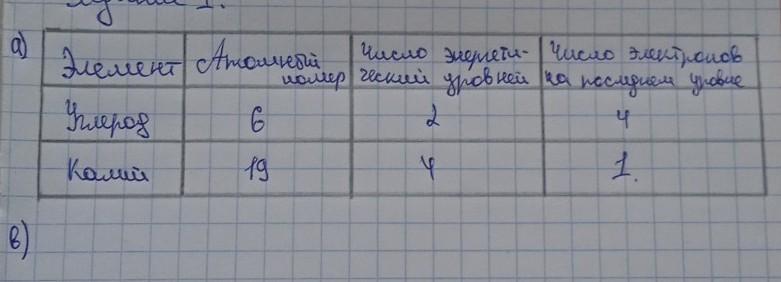 а)
Элемент Атомный номер Число энергети- ческий уровней Число электронов на последнем уровне
Углерод 6 2 4
Калий 19 4 1.
в)